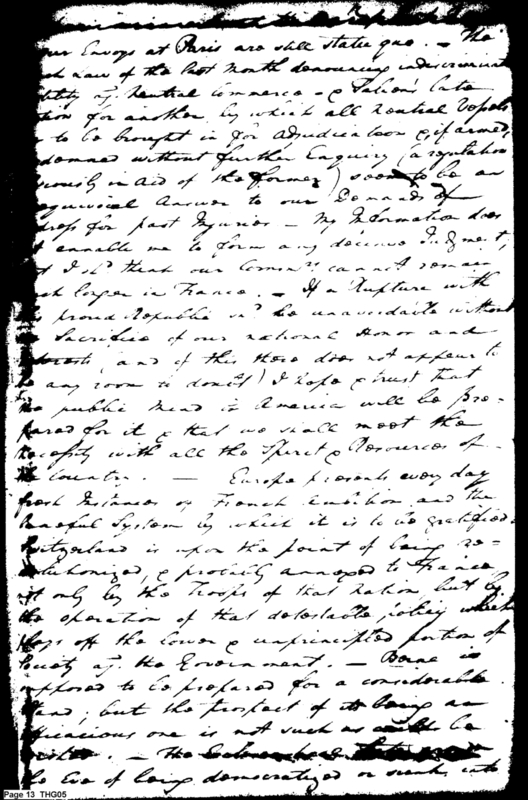 our Envoys at Paris are still statu quo. — The
Law of the last Month denouncing indiscriminate
agt. Neutral Commerce — &
for another, by which all Neutral Vessels
to be brought in for Adjudication & if armed,
without further Enquiry (a regulation
in aid of the former) seem to be an
Answer to our Demands of
for past Injuries — My Information does
ennable me to form any decisive Judgment,
I shd. think our Commrs. cannot remain
longer in France. — If a Rupture with
proud Republic be unavoidable without
Sacrifice of our national Honor and
(and of this there does not appear to
be any room to doubt) I hope & trust that
the public Mind in America will be pre=
pared for it & that we shall meet the
necessity with all the Spirit & Resources of
the Country. — Europe presents every day
fresh Instances of French Ambition and the
System by which it is to be gratified.
Switzerland is upon the point of being re=
volutionized, & probably annexed to France
not only by the Troops of that Nation but by
the operation of that detestable policy which
plays off the lower & unprincipled portion of
Society agt. the Government. — Berne is
supposed to be prepared for a considerable
Stand; but the prospect of its being an
efficacious one is not such as be
wished. — The
the Eve of being democratized or sunk into
Page 13 THG05